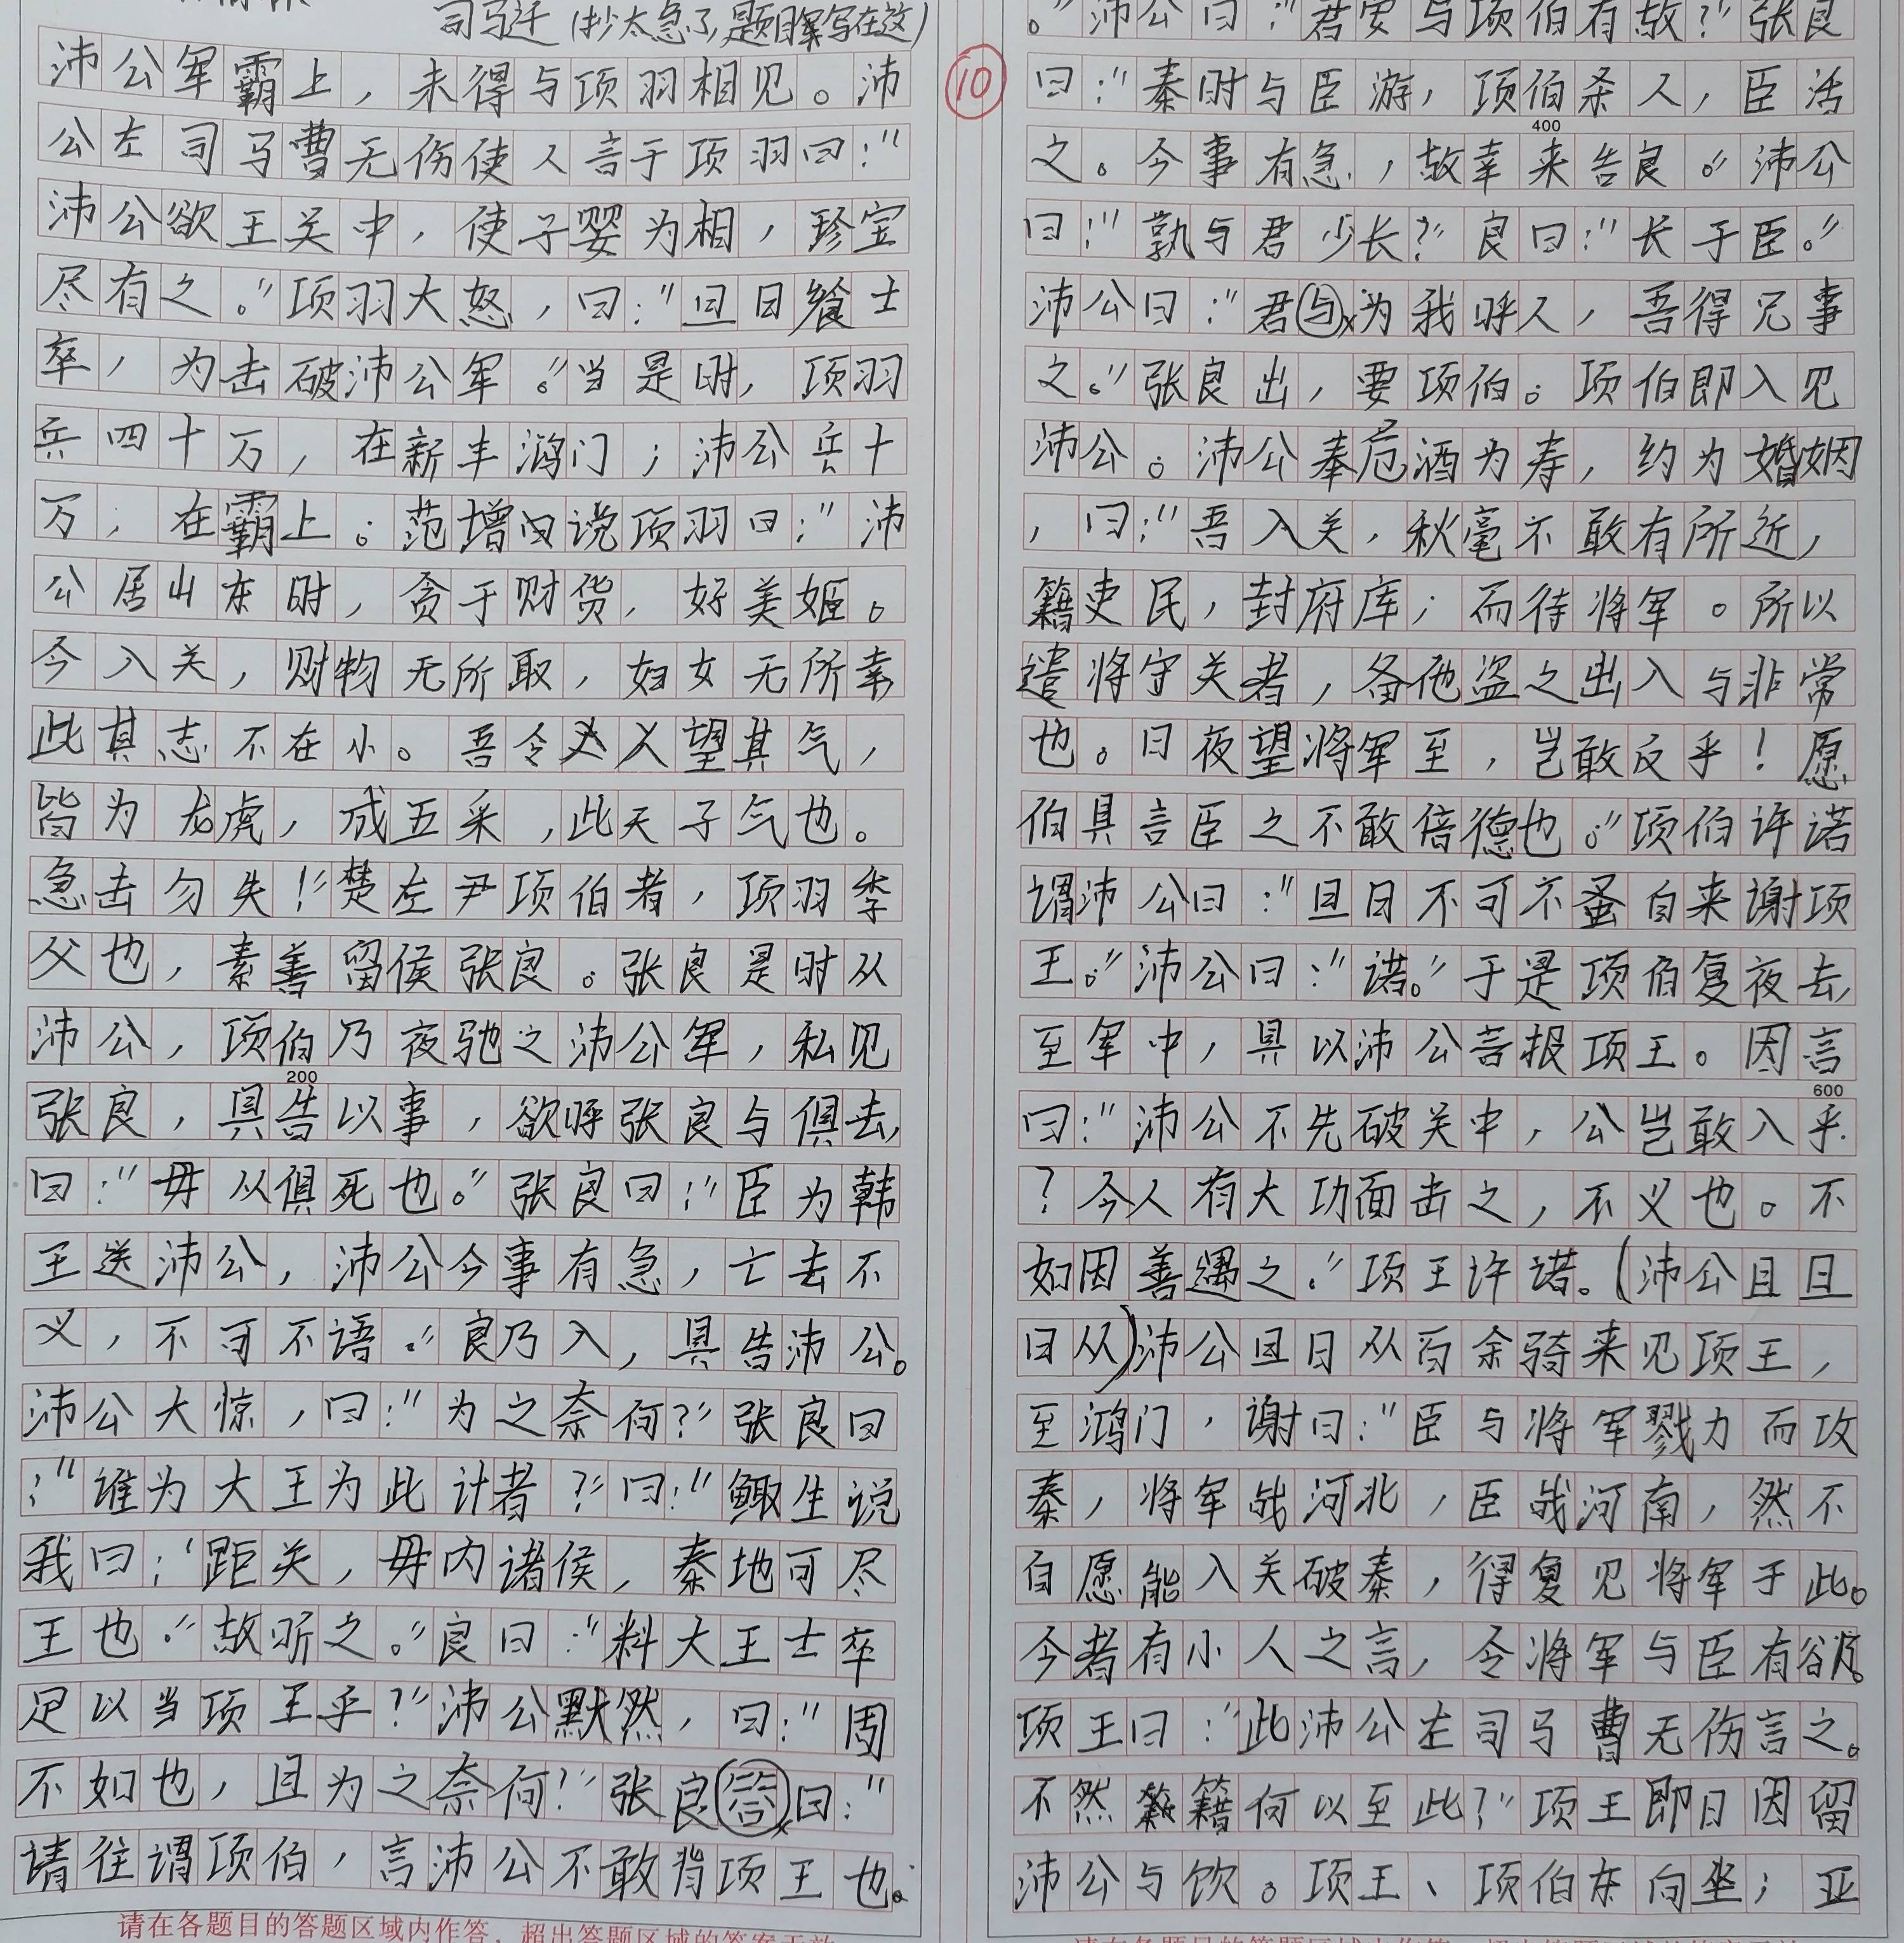 司马迁(抄太急了,题目写在这)
沛公军霸上，未得与项羽相见。沛
公左司马曹无伤使人言于项羽曰："
沛公欲王关中，使子婴为相，珍宝
尽有之。"项羽大怒，曰："旦日飨士
卒，为击破沛公军。"当是时，项羽
兵四十万，在新丰鸿门；沛公兵十
万，在霸上。范增说项羽曰："沛
公居山东时，贪于财货，好美姬。
今入关，财物无所取，妇女无所幸
此其志不在小。吾令人望其气，
皆为龙虎，成五采，此天子气也。
急击勿失！"楚左尹项伯者，项羽季
父也，素善留侯张良。张良是时从
沛公，项伯乃夜驰之沛公军，私见
200
张良，具告以事，欲呼张良与俱去，
曰："毋从俱死也。"张良曰："臣为韩
王送沛公，沛公今事有急，亡去不
义，不可不语。"良乃入，具告沛公。
沛公大惊，曰："为之奈何？"张良曰
："谁为大王为此计者？"曰："鲰生说
我曰：'距关，毋内诸侯，秦地可尽
王也。"故听之。"良曰："料大王士卒
足以当项王乎？"沛公默然，曰："固
不如也，且为之奈何？"张良答曰："
请往谓项伯，言沛公不敢背项王也。
请在各题目的答题区域内作答，超出答题区域的答案无效
。"沛公曰："君安与项伯有故？"张良
10
曰："秦时与臣游，项伯杀人，臣活
400
之。今事有急，故幸来告良。"沛公
曰："孰与君少长？"良曰："长于臣。"
沛公曰："君与为我呼人，吾得兄事
之。"张良出，要项伯。项伯即入见
沛公。沛公奉卮酒为寿，约为婚姻
，曰："吾入关，秋毫不敢有所近，
籍吏民，封府库；而待将军。所以
遣将守关者，备他盗之出入与非常
也。日夜望将军至，岂敢反乎！愿
伯具言臣之不敢倍德也。"项伯许诺
谓沛公曰："旦日不可不蚤自来谢项
王。"沛公曰："诺。"于是项伯复夜去，
至军中，具以沛公言报项王。因言
600
曰："沛公不先破关中，公岂敢入乎
？今人有大功而击之，不义也。不
如因善遇之。"项王许诺。(沛公且旦
日从)沛公旦日从百余骑来见项王，
至鸿门，谢曰："臣与将军戮力而攻
秦，将军战河北，臣战河南，然不
自愿能入关破秦，得复见将军于此。
今者有小人之言，令将军与臣有郤。
项王曰："此沛公左司马曹无伤言之。
不然籍何以至此？"项王即日因留
沛公与饮。项王、项伯东向坐；亚